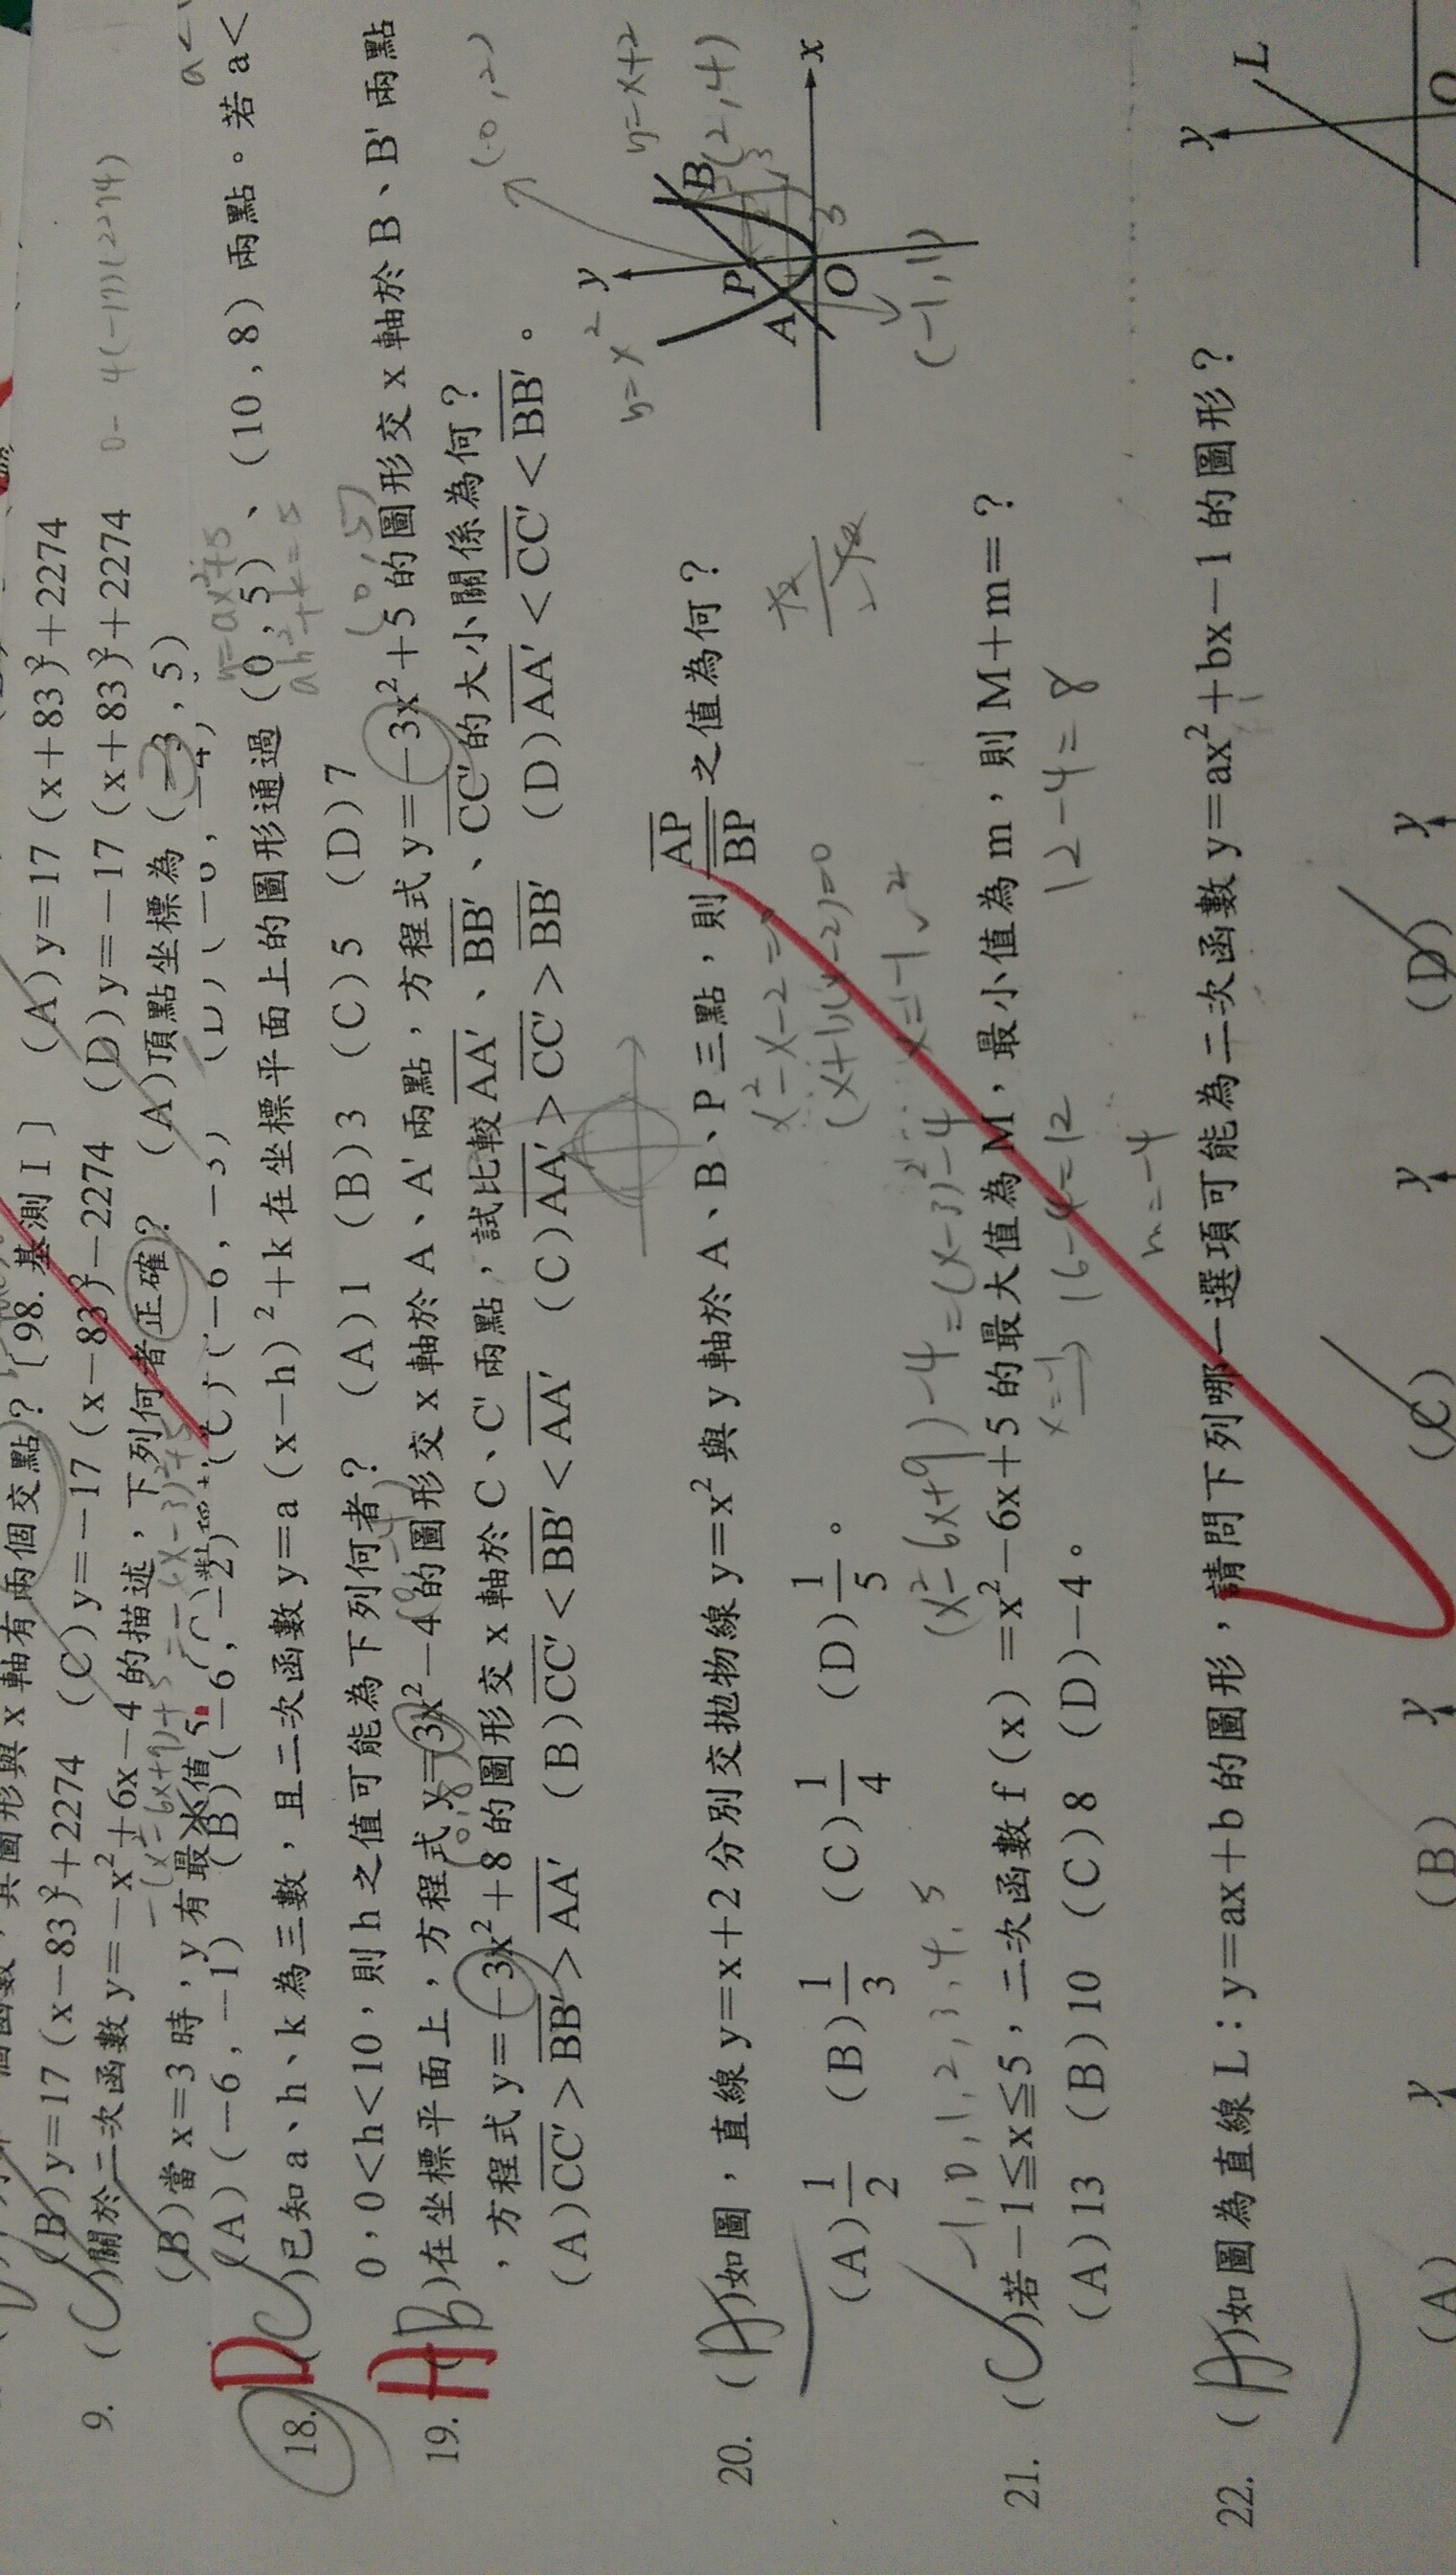 (A)y=17(x+83)²+2274
兩個交點?〔98.基測Ⅰ〕
(B)y=17(x-83)²+2274 (C)y=-17(x-83)²-2274 (D)y=-17(x+83)²+2274
0-4(-17)(2274)
9. (C)關於二次函數y=-x²+6x-4的描述,下列何者正確? (A)頂點坐標為(-3,5)
(B)當x=3時,y有最大值5
(A)(-6,-1) (B)(-6,-2)
y=ax²+5
ah²+k=5
D
18. (C)已知a、h、k為三數,且二次函數y=a(x-h)²+k在坐標平面上的圖形通過(0,5)、(10,8)兩點。若a<
0,0<h<10,則h之值可能為下列何者? (A)1 (B)3 (C)5 (D)7
A
19. (B)在坐標平面上,方程式y=-3x²-4的圖形交x軸於A、A'兩點,方程式y=-3x²+5的圖形交x軸於B、B'兩點
,方程式y=-3x²+8的圖形交x軸於C、C'兩點,試比較AA'、BB'、CC'的大小關係為何?
(A)CC'>BB'>AA' (B)CC'<BB'<AA' (C)AA'>CC'>BB' (D)AA'<CC'<BB'。
(0,5)
(0,8)
(0,2)
y=x²
y=x+2
y
P
A
B
(2,4)
O
x
(-1,1)
20. (A)如圖,直線y=x+2分別交拋物線y=x²與y軸於A、B、P三點,則AP/BP之值為何?
(A)1/2 (B)1/3 (C)1/4 (D)1/5。
x²-x-2=0
(x+1)(x-2)=0
x=-1,2
(x²-6x+9)-4=(x-3)²-4
-1,0,1,2,3,4,5
21. (C)若-1≦x≦5,二次函數f(x)=x²-6x+5的最大值為M,最小值為m,則M+m=?
(A)13 (B)10 (C)8 (D)-4。
x=-1 16-4=12
12-4=8
m=-4
22. (A)如圖為直線L:y=ax+b的圖形,請問下列哪一選項可能為二次函數y=ax²+bx-1的圖形?
y
L
O
(A) y (B) y (C) y (D) y